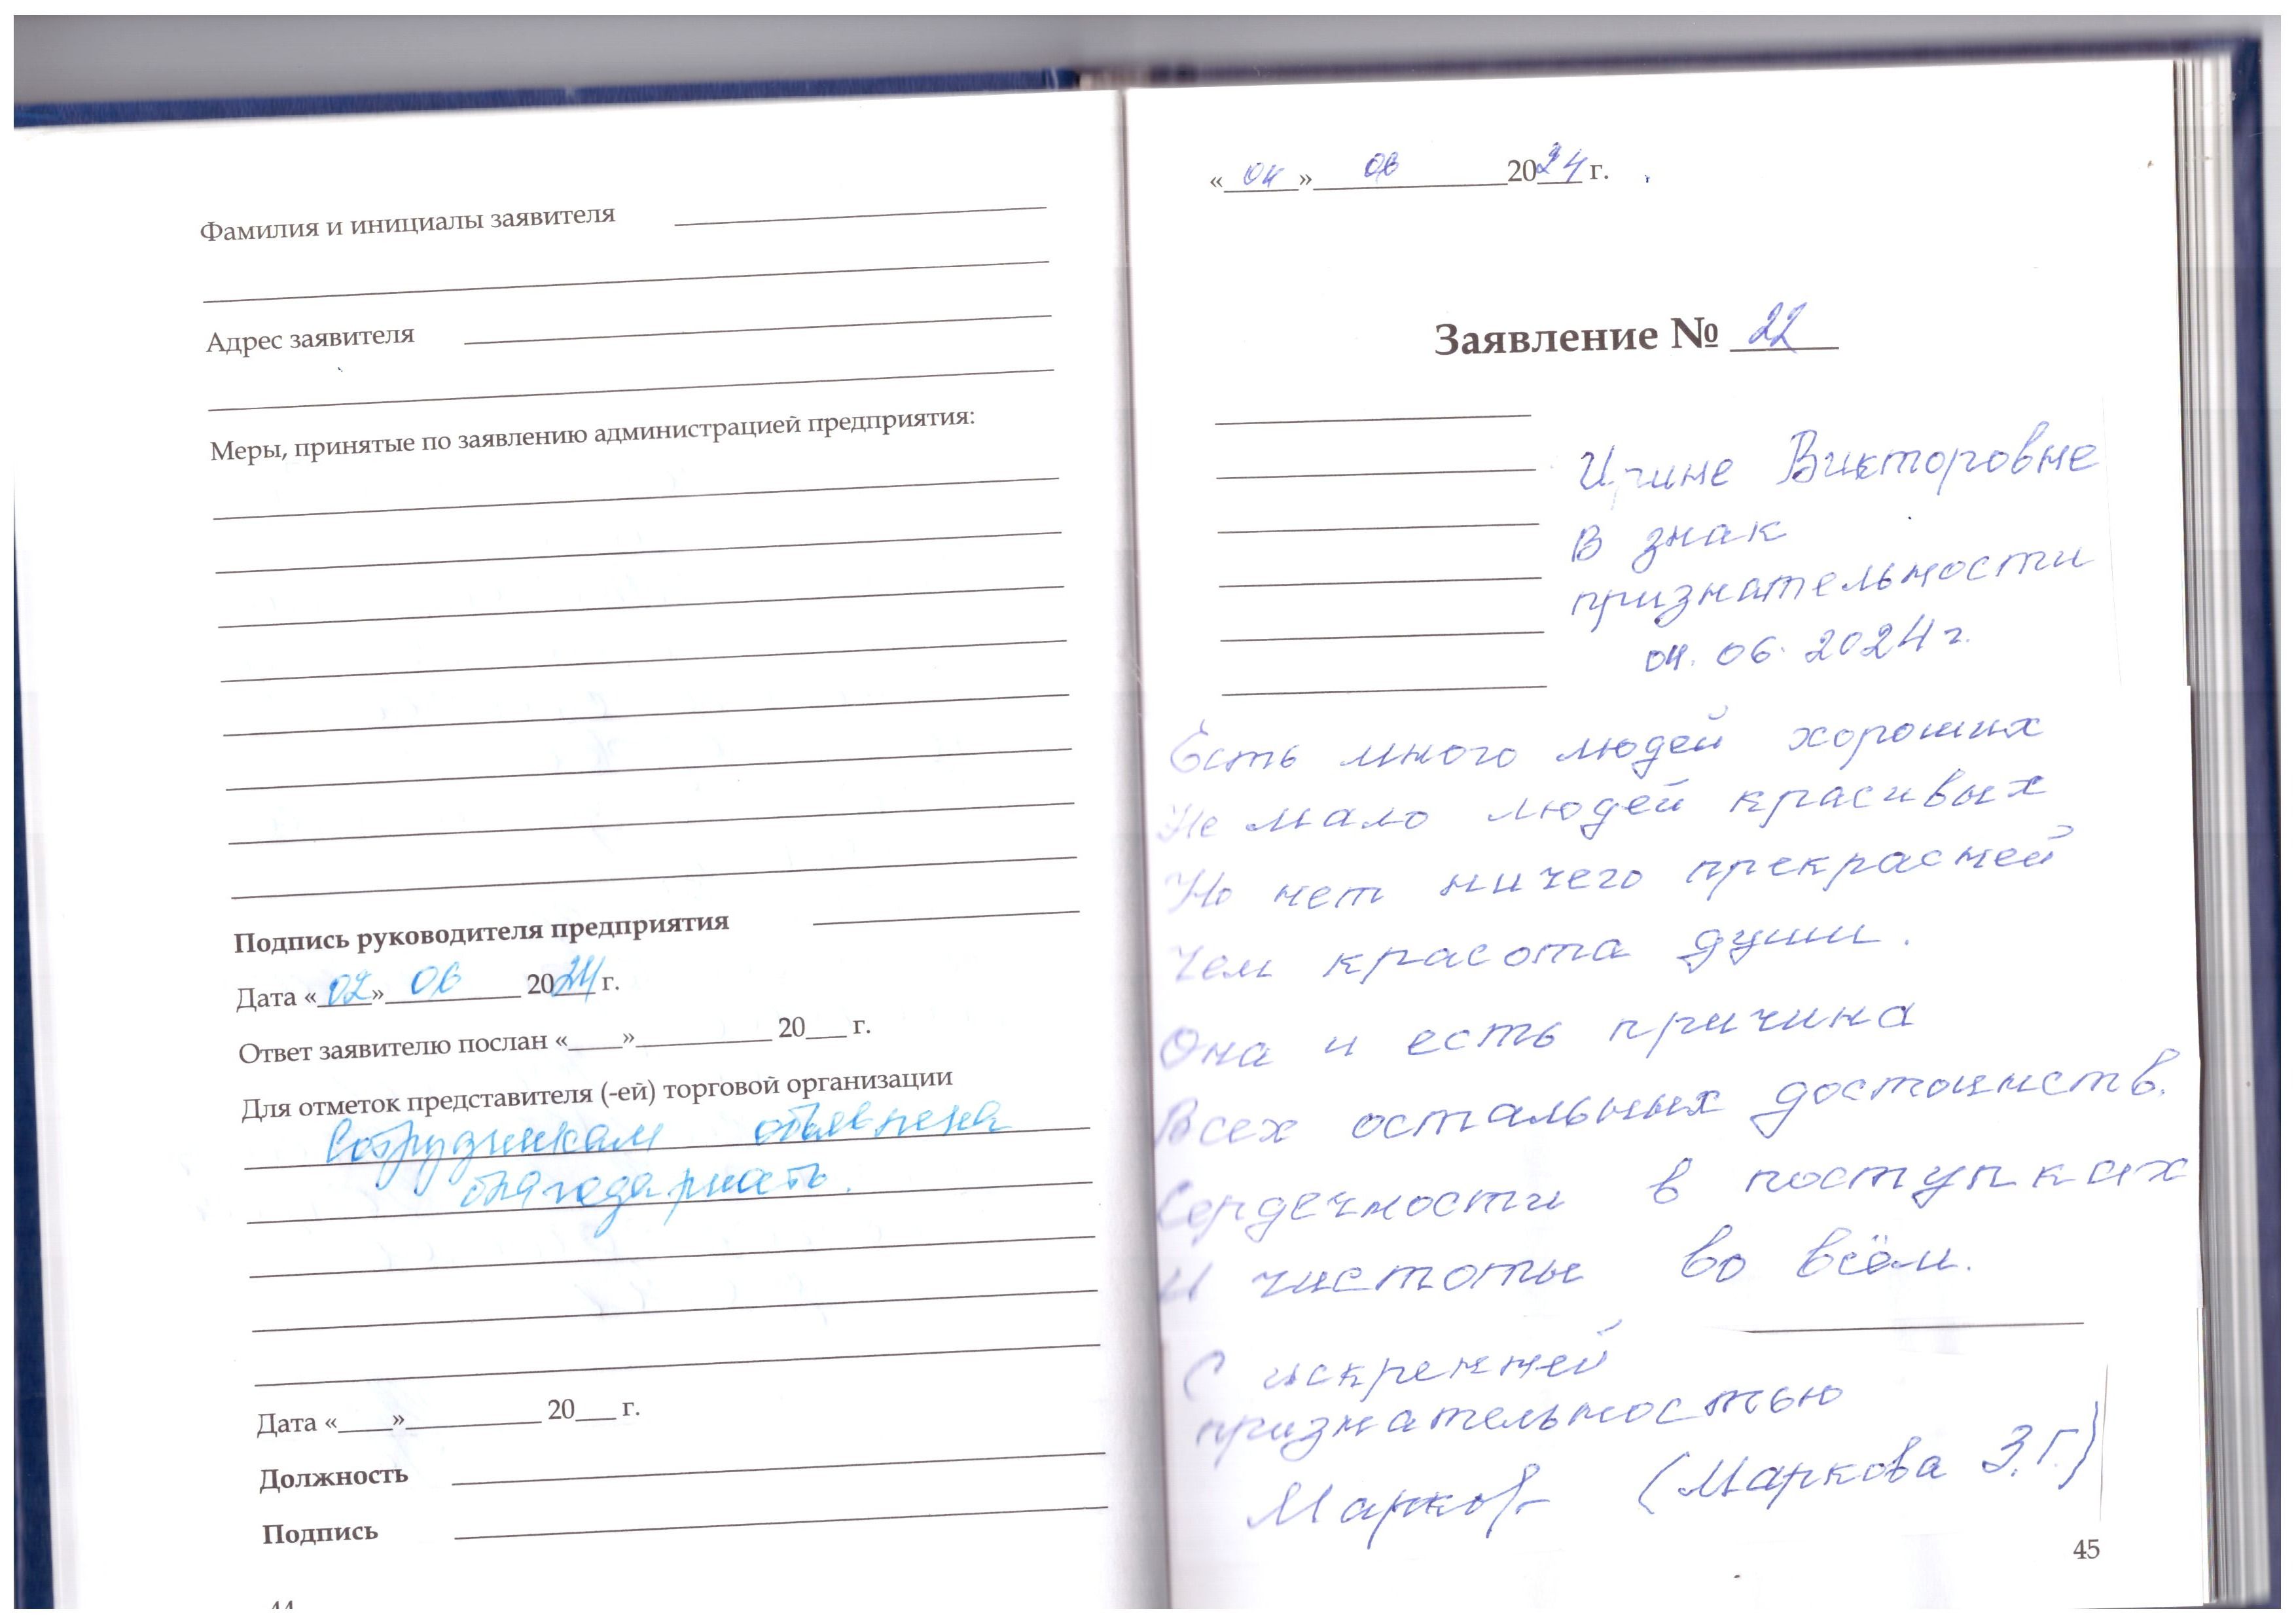 Фамилия и инициалы заявителя
Адрес заявителя
Меры, принятые по заявлению администрацией предприятия:
Подпись руководителя предприятия
Дата «02» 06 2024 г.
Ответ заявителю послан «____»__________ 20___ г.
Для отметок представителя (-ей) торговой организации
Сотрудникам объявлена
благодарность.
Дата «____»__________ 20___ г.
Должность
Подпись
44
«04» 06 2024 г.
Заявление № 22
Ирине Викторовне
в знак
признательности
04. 06. 2024 г.
Есть много людей хороших
Не мало людей красивых
Но нет ничего прекрасней
Чем красота души.
Она и есть причина
Всех остальных достоинств.
Сердечности в поступках
И чистоты во всём.
С искренней
признательностью
Марков (Маркова З.Г.)
45